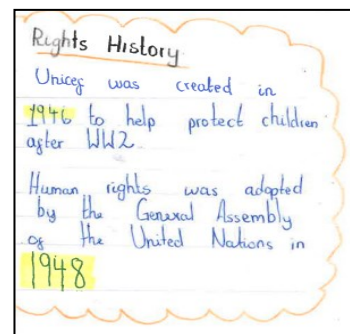 Rights History
Unicef was created in
1946 to help protect children
after WW2.
Human rights was adopted
by the General Assembly
of the United Nations in
1948